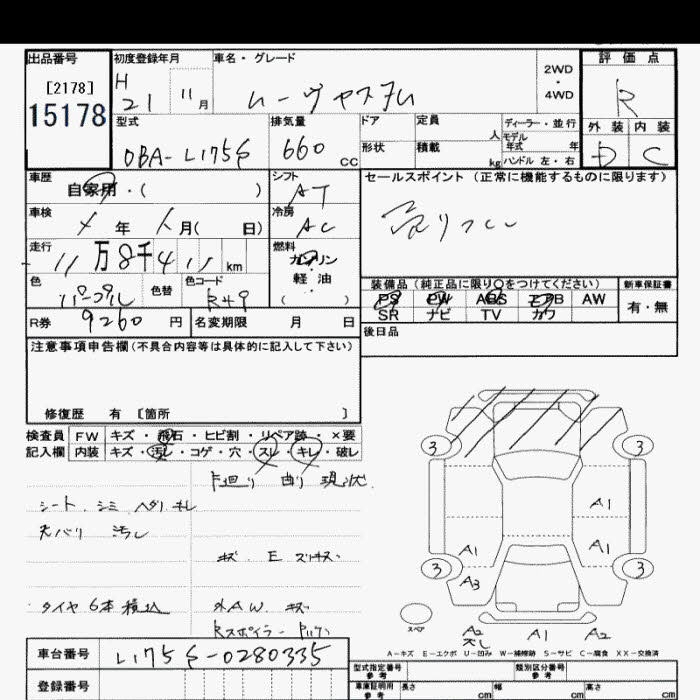 出品番号
[2178]
15178
初度登録年月
H
21 11月
車名・グレード
ムーヴカスタム
2WD
・
4WD
評価点
R
外装 内装
D C
型式
DBA-L175S
排気量
660 cc
ドア
形状
定員
人
積載
kg
ディーラー・並行
モデル
年式 年
ハンドル 左・右
車歴
自家用・( )
シフト
AT
セールスポイント (正常に機能するものに限ります)
売りつくし
車検
年 月( 日)
冷房
AC
走行
11万8千411km
燃料
ガソリン
軽油
( )
色
パープル
色替
色カラーコード
R券
9260円
名変期限 月 日
装備品 (純正品に限り〇をつけてください)
新車保証書
PS PW ABS エアB AW
SR ナビ TV カワ
有・無
後日品
注意事項申告欄 (不具合内容等は具体的に記入して下さい)
修復歴 有 [箇所 ]
検査員
記入欄
FW キズ・飛石・ヒビ割・リペア跡・×要
内装 キズ・汚レ・コゲ・穴・スレ・キレ・破レ
下廻り 曲り 現状
シート シミ ヘタリ キレ
天バリ 汚レ
キズ E スリキズ
タイヤ 6本 積込
外AW キズ
Rスポイラー
3 3
A1
A1 A1
3 3
A3
スペア
A2 A1 A2
A-キズ E-エクボ U-凹み W-補修跡 S-サビ C-腐食 XX-交換済
車台番号
L175S-0280335
登録番号
型式指定番号
参考
類別区分番号
参考
車庫証明用
参考
長さ cm
幅 cm
高さ cm